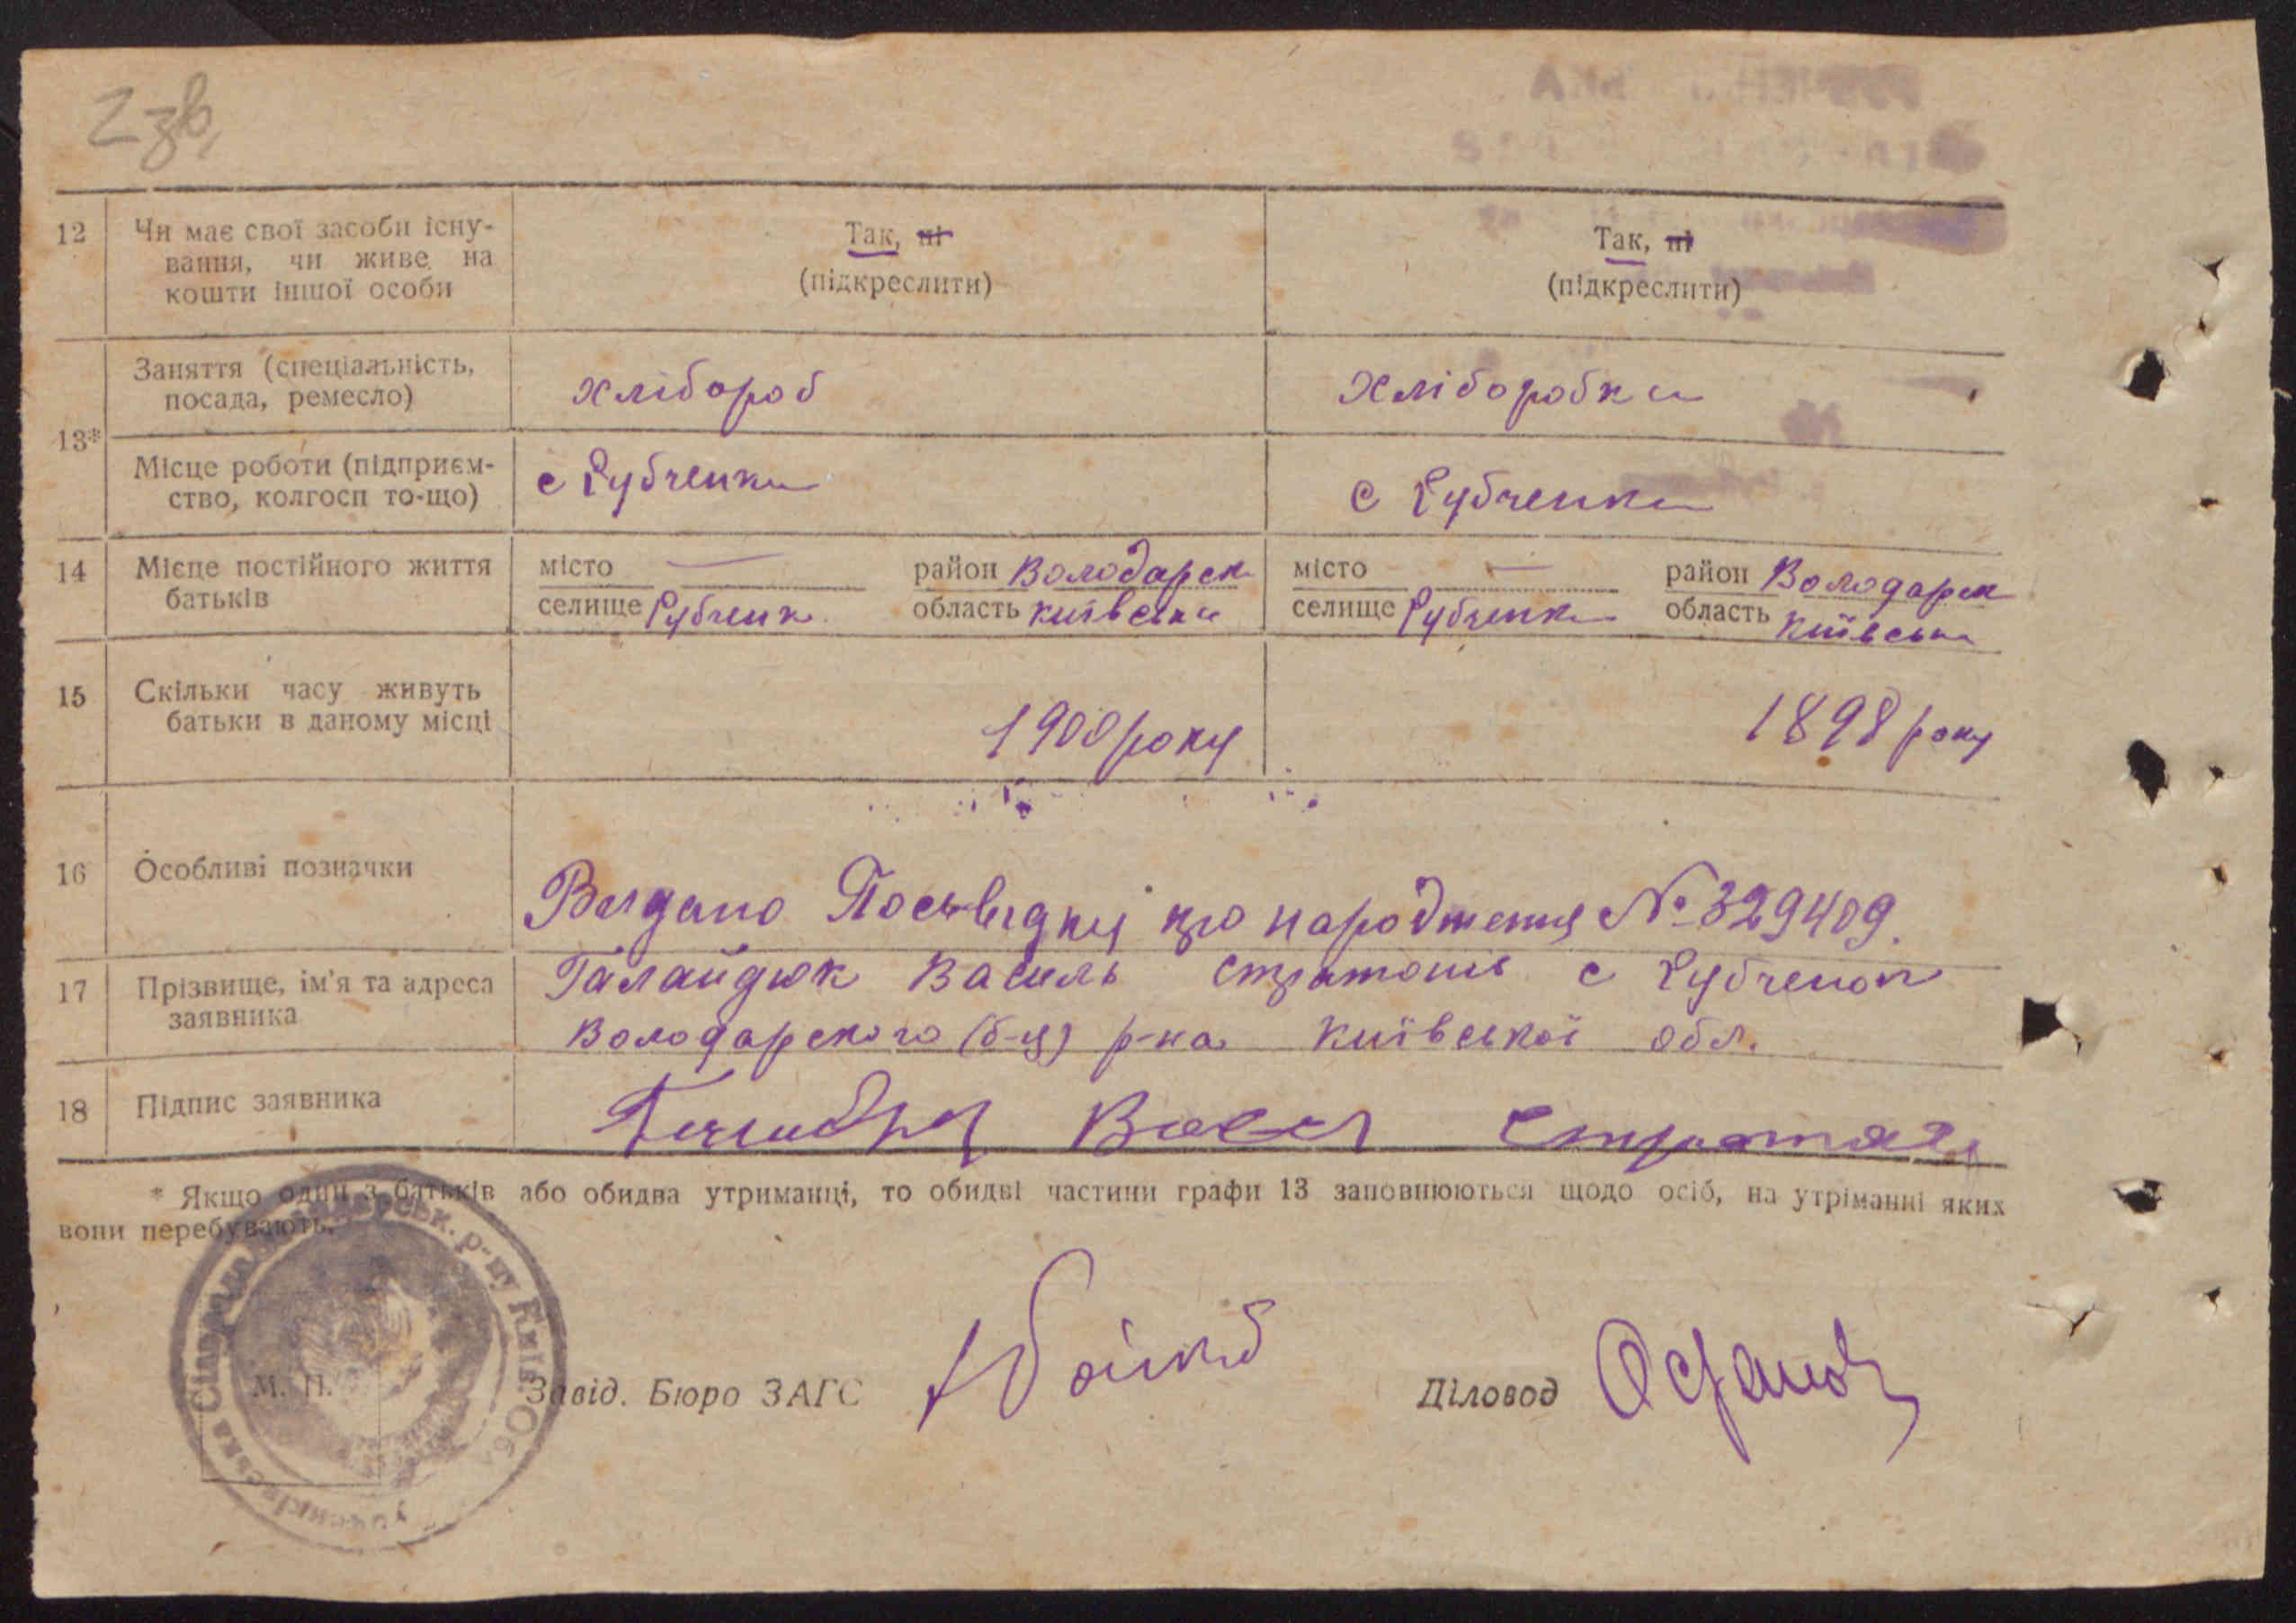 2 зв.
12 Чи має свої засоби існу- Так, ні Так, ні
вання, чи живе на (підкреслити) (підкреслити)
кошти іншої особи
13* Заняття (спеціальність, хлібороб хліборобка
посада, ремесло)
Місце роботи (підприєм- с Рубченки с Рубченки
ство, колгосп то-що)
14 Місце постійного життя місто — район Володарск місто — район Володарск
батьків селище Рубченк область Київська селище Рубченки область Київська
15 Скільки часу живуть 1900 року 1898 року
батьки в даному місці
16 Особливі позначки
Видано Посьвідку про народження № 329409.
17 Прізвище, ім'я та адреса Галайдюк Василь с Рубченок
заявника Володарского (б-ц) р-на Київської обл.
18 Підпис заявника
* Якщо один з батьків або обидва утриманці, то обидві частини графи 13 заповнюються щодо осіб, на утріманні яких
вони перебувають.
М. П.
Завід. Бюро ЗАГС
Діловод
р-ну Київ. Об.